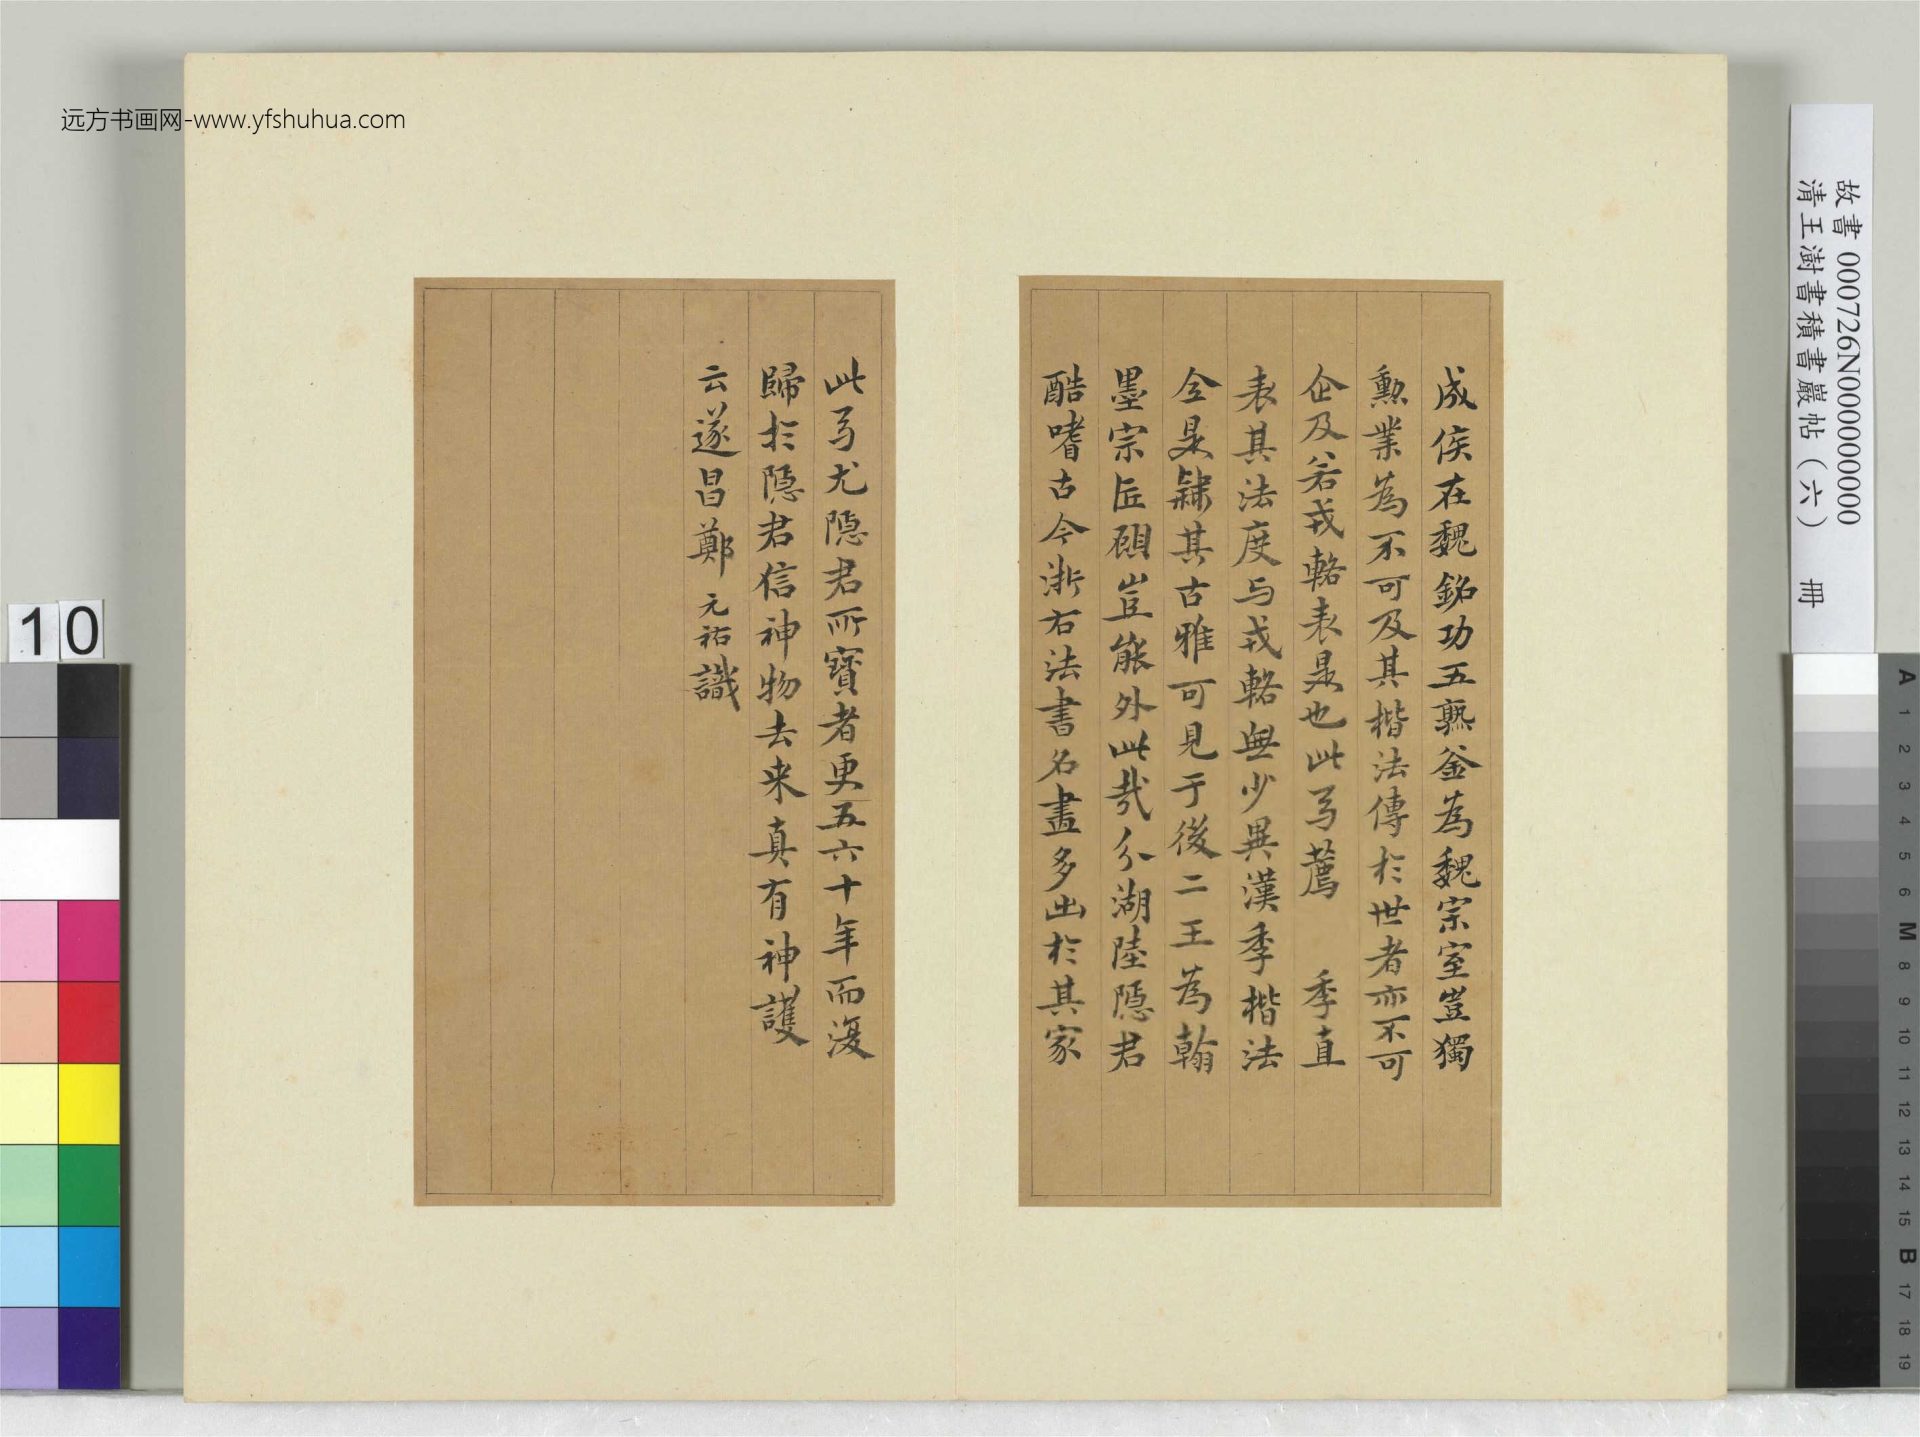 远方书画网-www.yfshuhua.com
故書 000726N000000000
清王澍書積書巖帖(六) 冊
成侯在魏銘功五熟釜為魏宗室豈獨
勳業為不可及其楷法傳於世者亦不可
企及若戎輅表是也此乃薦 季直
表其法度与戎輅無少異漢季楷法
今是隸其古雅可見于後二王為翰
墨宗匠碩豈能外此哉分湖陸隱君
酷嗜古今淛右法書名畫多出於其家
此乃尤隱君所寶者更五六十年而復
歸於隱君信神物去来真有神護
云遂昌鄭元祐識
10
A
1
2
3
4
5
6
M
8
9
10
11
12
13
14
15
B
17
18
19